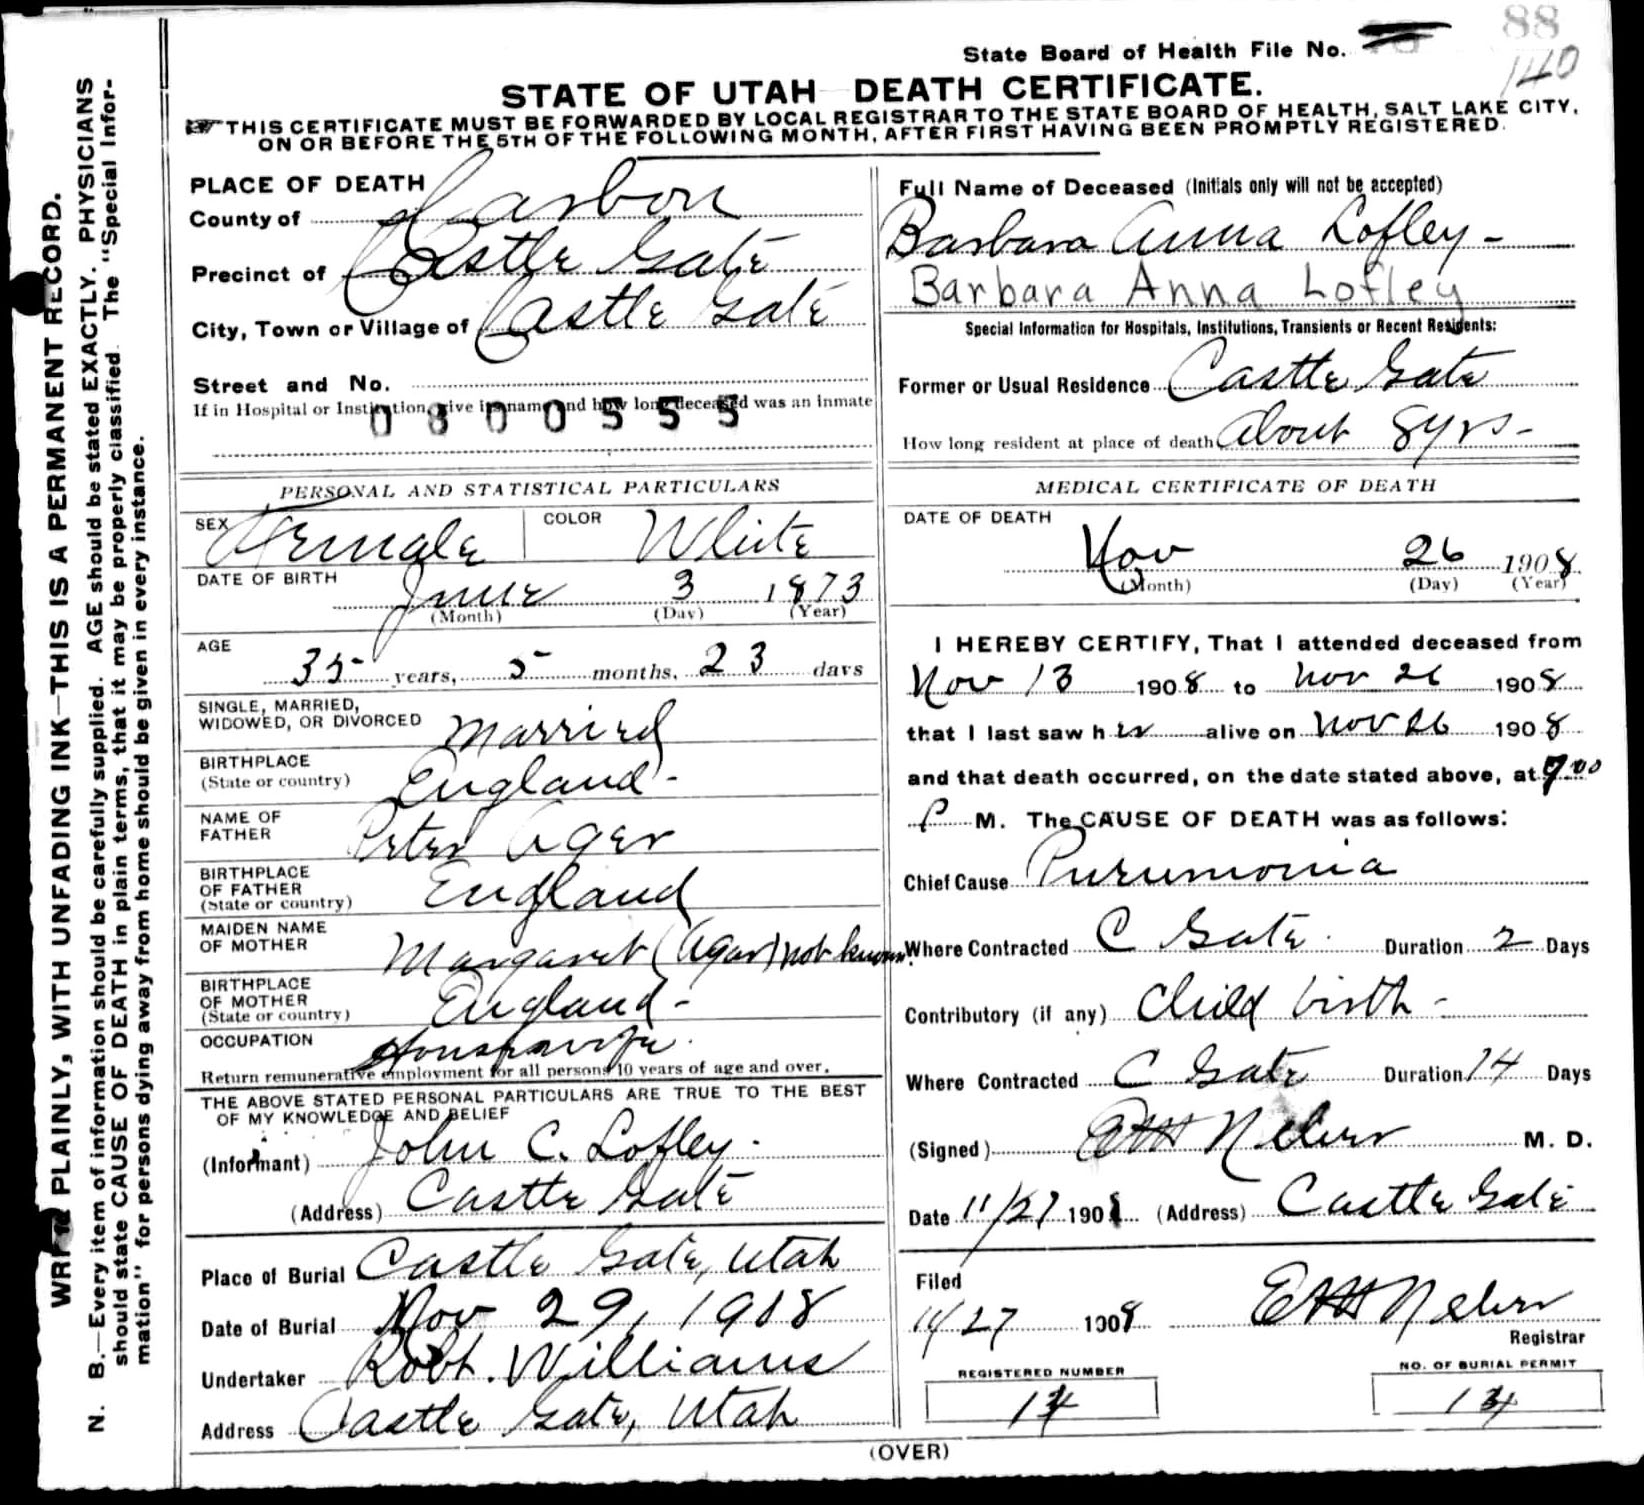 State Board of Health File No.
88
140
STATE OF UTAH DEATH CERTIFICATE.
THIS CERTIFICATE MUST BE FORWARDED BY LOCAL REGISTRAR TO THE STATE BOARD OF HEALTH, SALT LAKE CITY,
ON OR BEFORE THE 5TH OF THE FOLLOWING MONTH, AFTER FIRST HAVING BEEN PROMPTLY REGISTERED.
WRITE PLAINLY, WITH UNFADING INK—THIS IS A PERMANENT RECORD.
N. B.—Every item of information should be carefully supplied. AGE should be stated EXACTLY. PHYSICIANS
should state CAUSE OF DEATH in plain terms, that it may be properly classified. The "Special Infor-
mation" for persons dying away from home should be given in every instance.
PLACE OF DEATH
County of Carbon
Precinct of Castle Gate
City, Town or Village of Castle Gate
Street and No.
If in Hospital or Institution, give its name and how long deceased was an inmate
0800555
PERSONAL AND STATISTICAL PARTICULARS
SEX Female COLOR White
DATE OF BIRTH
June 3 1873
(Month) (Day) (Year)
AGE
35 years, 5 months, 23 days
SINGLE, MARRIED,
WIDOWED, OR DIVORCED Married
BIRTHPLACE
(State or country) England -
NAME OF
FATHER Peter Ager
BIRTHPLACE
OF FATHER
(State or country) England
MAIDEN NAME
OF MOTHER Margaret (Agar) not known
BIRTHPLACE
OF MOTHER
(State or country) England -
OCCUPATION Housewife.
Return remunerative employment for all persons 10 years of age and over.
THE ABOVE STATED PERSONAL PARTICULARS ARE TRUE TO THE BEST
OF MY KNOWLEDGE AND BELIEF
(Informant) John C. Lofley.
(Address) Castle Gate
Place of Burial Castle Gate, Utah
Date of Burial Nov 29, 1908
Undertaker Robt. Williams
Address Castle Gate, Utah
Full Name of Deceased (Initials only will not be accepted)
Barbara Anna Lofley -
Barbara Anna Lofley
Special Information for Hospitals, Institutions, Transients or Recent Residents:
Former or Usual Residence Castle Gate
How long resident at place of death About 8 yrs -
MEDICAL CERTIFICATE OF DEATH
DATE OF DEATH
Nov 26 1908
(Month) (Day) (Year)
I HEREBY CERTIFY, That I attended deceased from
Nov 13 1908 to Nov 26 1908
that I last saw her alive on Nov 26 1908
and that death occurred, on the date stated above, at 9.00
P M. The CAUSE OF DEATH was as follows:
Chief Cause Pneumonia
Where Contracted C Gate. Duration 2 Days
Contributory (if any) Child birth -
Where Contracted C Gate Duration 14 Days
(Signed) M. D.
Date 11/27 1908 (Address) Castle Gate
Filed
11/27 1908
Registrar
REGISTERED NUMBER
NO. OF BURIAL PERMIT
(OVER)